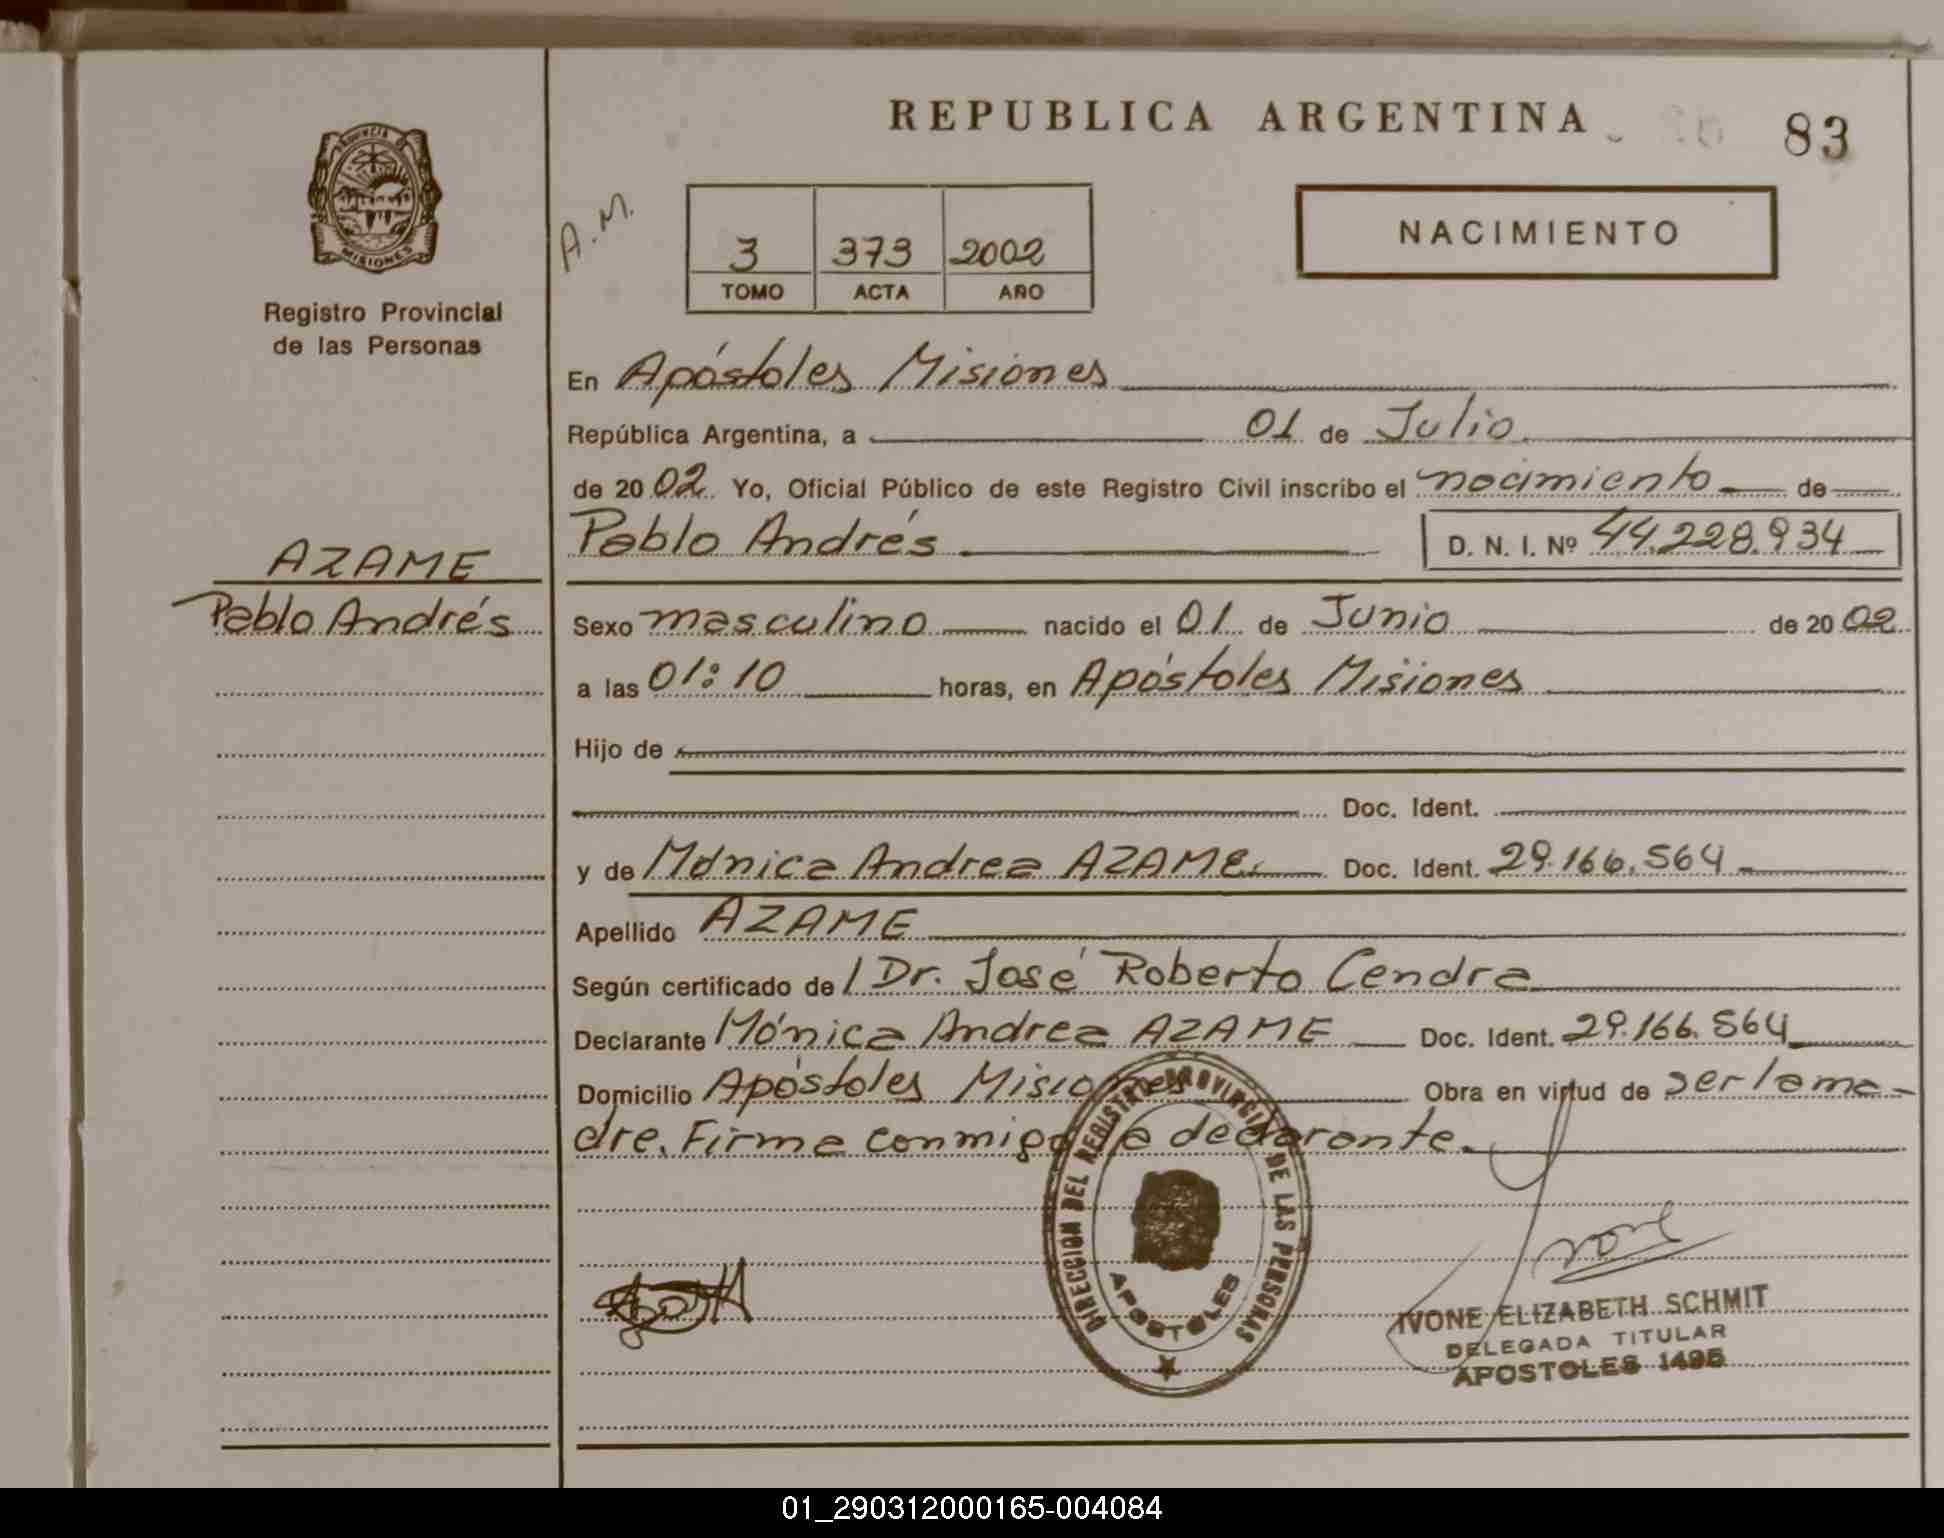 REPUBLICA ARGENTINA
83
PROVINCIA
MISIONES
Registro Provincial
de las Personas
A.M.
3 373 2002
TOMO ACTA AÑO
NACIMIENTO
En Apóstoles Misiones
República Argentina, a 01 de Julio
de 2002 Yo, Oficial Público de este Registro Civil inscribo el nacimiento de
Pablo Andrés D. N. I. Nº 44.228.934
AZAME
Pablo Andrés
Sexo masculino nacido el 01 de Junio de 2002
a las 01:10 horas, en Apóstoles Misiones
Hijo de
Doc. Ident.
y de Mónica Andrea AZAME Doc. Ident. 29.166.564
Apellido AZAME
Según certificado de Dr. José Roberto Cendra
Declarante Mónica Andrea AZAME Doc. Ident. 29.166.564
Domicilio Apóstoles Misiones Obra en virtud de ser la ma-
dre. Firma conmigo la declarante.
DIRECCION DEL REGISTRO PROVINCIAL DE LAS PERSONAS
APOSTOLES
IVONE ELIZABETH SCHMIT
DELEGADA TITULAR
APOSTOLES 1495
01_290312000165-004084